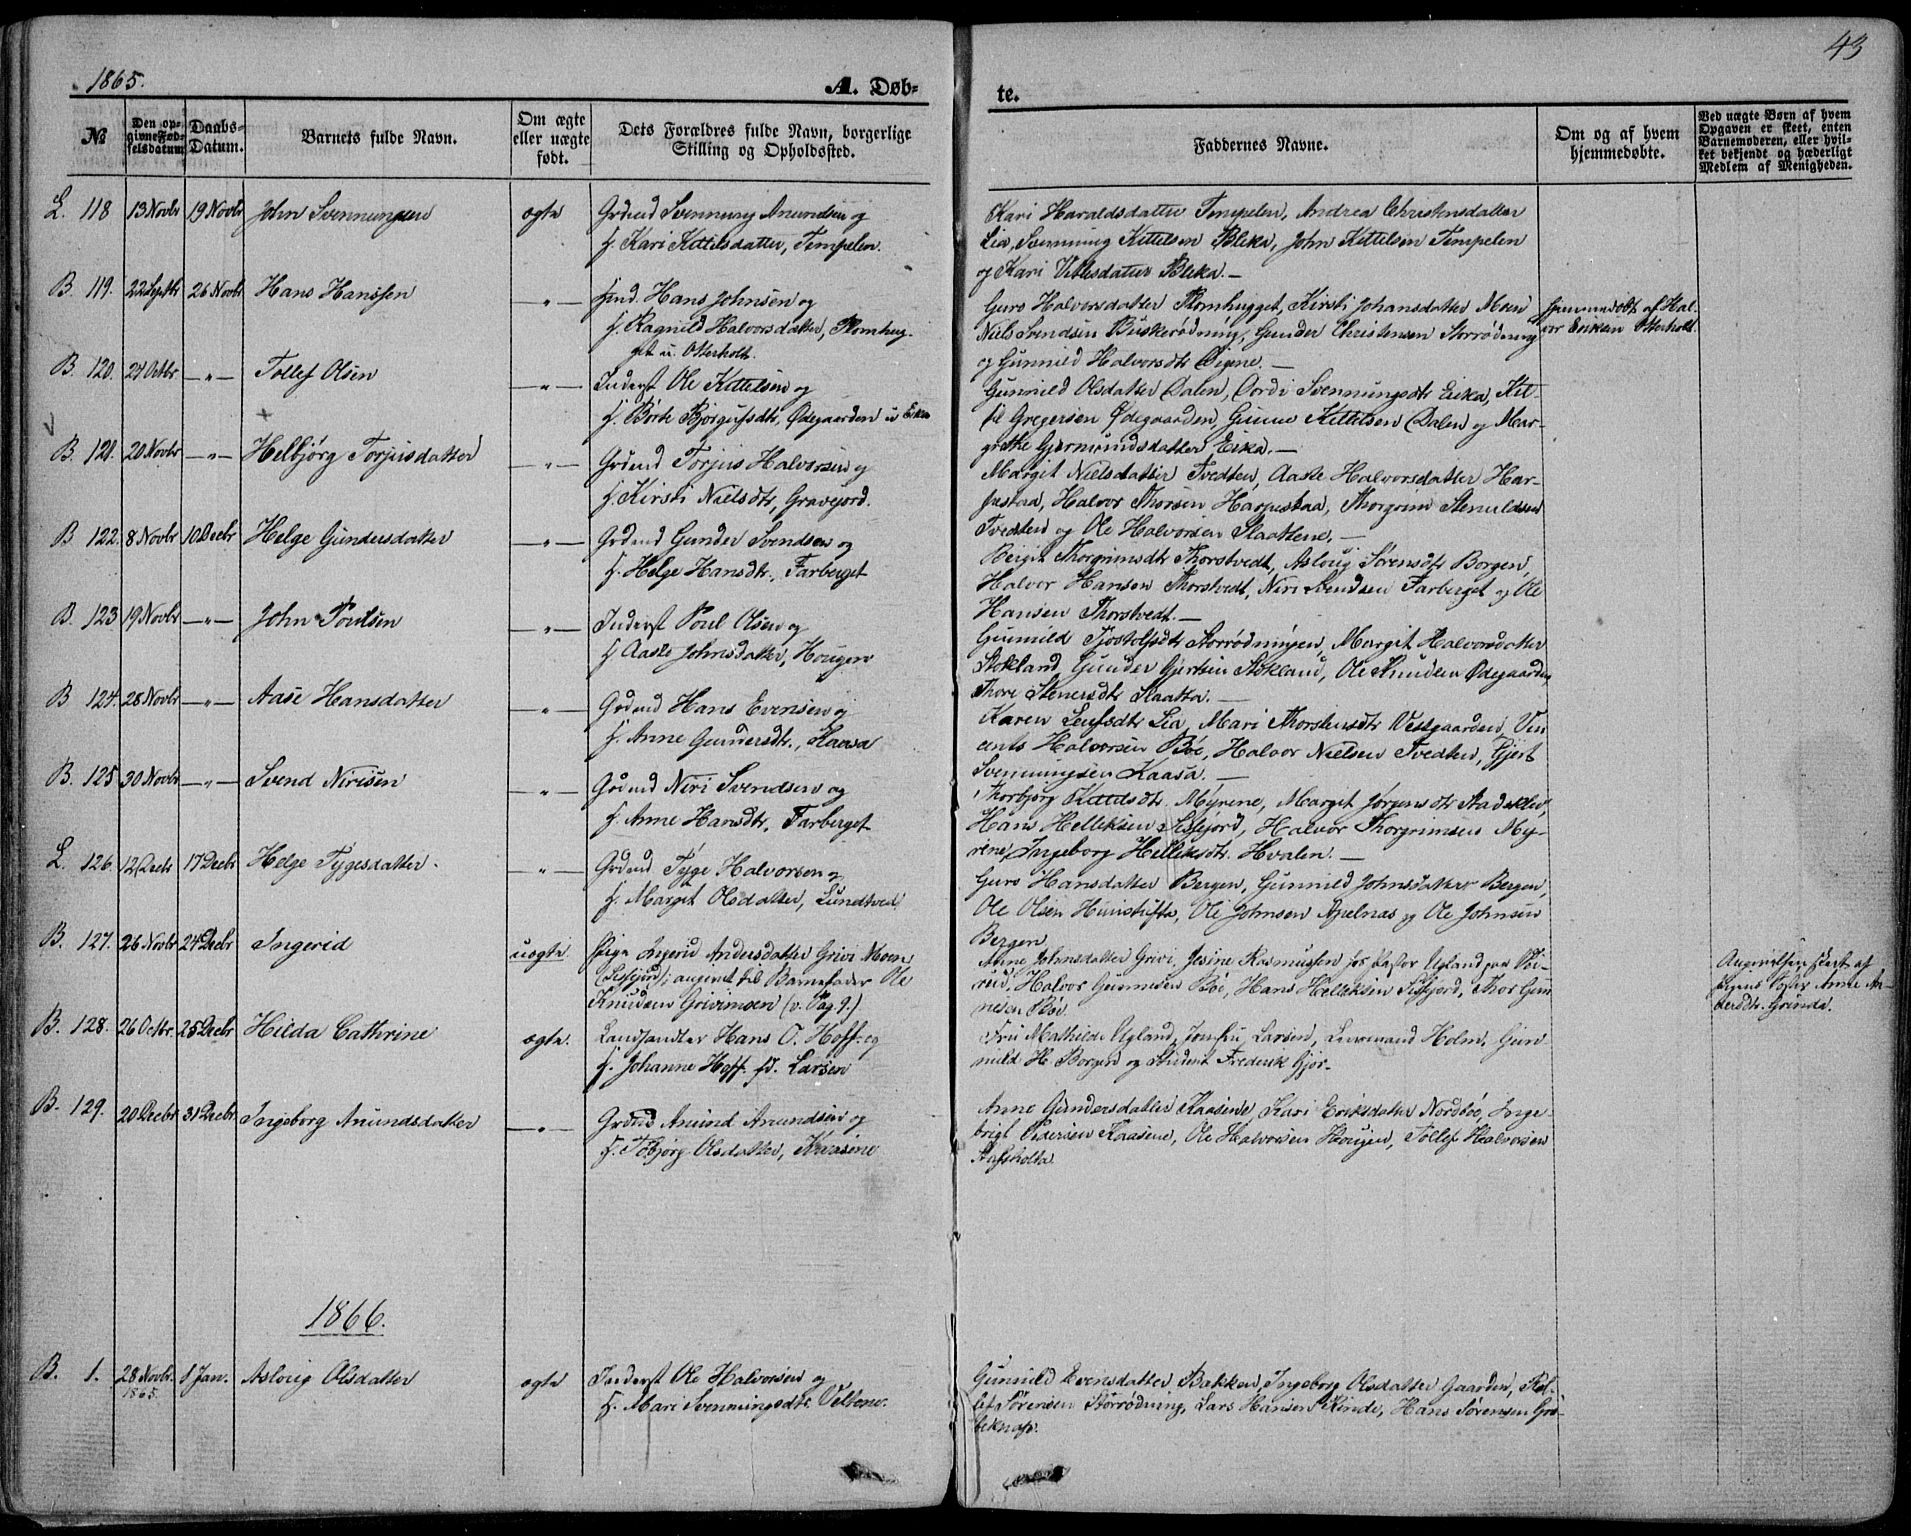 1865.
A. Døb-
te.
43
No
Den op-
givne Fød-
selsdatum.
Daabs-
Datum.
Barnets fulde Navn.
Om ægte
eller uægte
født.
Dets Forældres fulde Navn, borgerlige
Stilling og Opholdssted.
Faddernes Navne.
Om og af hvem
hjemmedøbte.
Ved uægte Børn af hvem
Opgaven er skeet, enten
Barnemoderen, eller hvil-
ket bekjendt og hæderligt
Medlem af Menigheden.
L. 118 13 Novbr 19 Novbr John Svennungsen ægte Grdmd Svennung Amundsen og
f. Kari Kittilsdatter, Tempelen.
Kari Haraldsdatter Tempelen, Andrea Christensdatter
Lia, Svennung Kittelsen Bleka, John Kittelsen Tempelen
og Kari Bleka. —
B. 119. 22 Septbr 26 Novbr Hans Hanssen — " — Hans Johnsen og
f. Ragnild Halvorsdatter, Plomhug-
get u. Otterholt.
Guro Halvorsdatter Plomhugget, Kirsti Johansdatter Moen
Niels Svendsen Buskerødning, Gunder Christensen Storrødning
og Gunnild Halvorsdtr Teigene. —
Hjemmedøbt af Hal-
vor Eriksen Otterholt.
B. 120. 24 Octbr — " — Tollef Olsen — " — Inderst Ole Kittelsen og
f. Birte Bjørgufsdtr, Ødegaarden u Eika
Gunnild Olsdatter Dalen, Dordi Svennungsdtr Eika, Kit-
til Gregersen Ødegaarden, Gunne Kittelsen Dalen og Mar-
grethe Gjermundsdatter Eika. —
B. 121. 20 Novbr — " — Helbjørg Torjusdatter — " — Grdmd Torjus Halvorsen og
f. Kirsti Nielsdtr, Gravejord.
Margit Nielsdatter Tvedten, Aaste Halvorsdatter Har-
pestaa, Halvor Thorsen Harpestaa, Thorgrim Stenuldsen
Tvedten og Ole Halvorsen Slaattene. —
B 122. 8 Novbr 10 Decbr Helge Gundersdatter — " — Grdmd Gunder Svendsen og
f. Helge Hansdtr., Farberget
Bergit Thorgrimsdtr Thorstvedt, Asloug Sørensdtr Borgen,
Halvor Hansen Thorstvedt, Niri Svendsen Farberget og Ole
Hansen Thorstvedt. —
B. 123 19 Novbr — " — John Poulsen — " — Inderst Poul Olsen og
f Aaste Johnsdatter, Hougen
Gunnild Tjostolfsdtr Storrødningen, Margit Halvorsdatter
Stokland, Gunder Gjertsen Stokland, Ole Knudsen Ødegaarden,
Thore Stenersdtr Slaatta. —
B 124. 28 Novbr — " — Aase Hansdatter — " — Grdmd Hans Evensen og
f. Anne Gundersdtr., Kaasa
Karen Leifsdtr Lia, Mari Thorstensdtr Vestgaarden, Vin-
cents Halvorsen Bøe, Halvor Nielsen Tvedten, Gjert
Svennungsen Kaasa. —
B. 125 30 Novbr — " — Svend Nirisen — " — Grdmd Niri Svendsen og
f. Anne Hansdtr, Farberget
Thorbjørg Kittilsdtr. Myrene, Marget Jørgensdtr
Hans Helliksen Sisjord, Halvor Thorgrimsen My-
rene, Ingeborg Helliksdtr. Hvalen. —
L. 126. 12 Decbr 17 Decbr Helge Tygesdatter. — " — Grdmd Tyge Halvorsen og
f. Marget Olsdatter, Lundtvedt
Guro Hansdatter Bergen, Gunnild Johnsdatter Bergen,
Ole Olsen Hunstufta, Ole Johnsen Apelnas og Ole Johnsen
Bergen
B. 127. 26 Novbr 24 Decbr Ingerid uægte Pige Ingerid Andersdatter Grivi Moen
angivet til Barnefader Ole
Knudsen Grivimoen (v. Pag 9.)
Anne Johnsdatter Grivi, Jesine Rasmussen hos Pastor Ugland paa
Halvor Gunnesen Bøe, Hans Helliksen Sisjord, Thor Gun-
nesen Bøe.
Angivelsen skeet af
Pigens Søster Anne An-
dersdtr. Grunda.
B. 128. 26 Octbr. 25 Decbr Hilda Cathrine ægte. Landhandler Hans O. Hoff og
f. Johanne Hoff. fd. Larsen
Fru Mathilde Ugland, Jomfru Larsen, Holm, Gun-
nild H. Borgen og Student Frederik Gjør-
B. 129. 20 Decbr 31 Decbr Ingeborg Anundsdatter — " — Grdmd Anund Anundsen og
f. Tobjørg Olsdatter, Kaasine
Anne Gundersdatter Kaasene, Kari Eriksdatter Nordbøe, Inge-
brigt Pedersen Kaasene, Ole Halvorsen Hougen, Tollef Halvorsen
Stafsholta.
1866.
B. 1. 28 Novbr. 1865. 1 Jan. Aslaug Olsdatter ægte Inderst Ole Halvorsen og
f. Mari Svennungsdtr. Veltene.
Gunnild Evensdatter Bakken, Ingeborg Olsdatter Gaarden, Tol-
lef Sørensen Storrødning, Lars Hansen Rinde, Hans Sørensen Gra-
beknap.